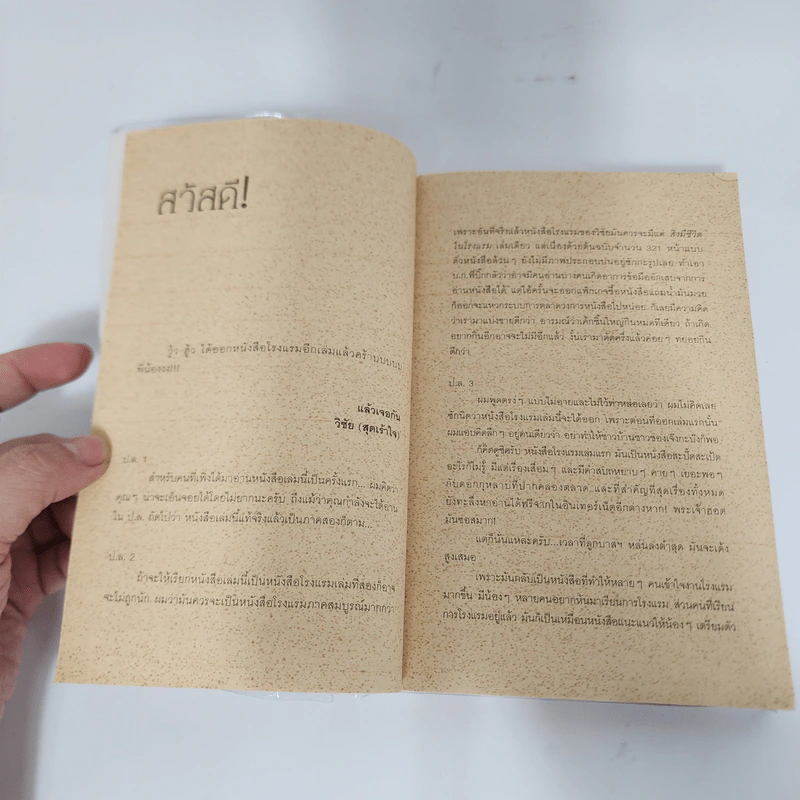 สวัสดี!
วู้ว ฮู้ว ได้ออกหนังสือโรงแรมอีกเล่มแล้วคร้าบบบบบ
พี่น้องงง!!!
แล้วเจอกัน
วิชัย (สุดเร้าใจ)
ป.ล. 1
สำหรับคนที่เพิ่งได้มาอ่านหนังสือเล่มนี้เป็นครั้งแรก... ผมคิดว่า
คุณๆ น่าจะเอ็นจอยได้โดยไม่ยากนะครับ ถึงแม้ว่าคุณกำลังจะได้อ่าน
ใน ป.ล. ถัดไปว่า หนังสือเล่มนี้แท้จริงแล้วเป็นภาคสองก็ตาม...
ป.ล. 2
ถ้าจะให้เรียกหนังสือเล่มนี้เป็นหนังสือโรงแรมเล่มที่สองก็อาจ
จะไม่ถูกนัก ผมว่ามันควรจะเป็นหนังสือโรงแรมภาคสมบูรณ์มากกว่า
เพราะอันที่จริงแล้วหนังสือโรงแรมของวิชัยมันควรจะมีแค่ สิ่งมีชีวิต
ในโรงแรม เล่มเดียว แต่เนื่องด้วยต้นฉบับจำนวน 321 หน้าแบบ
ตัวหนังสือล้วนๆ ยังไม่มีภาพประกอบปนอยู่ซักกะรูปเลย ทำเอา
บ.ก.พี่บิ๊กกลัวว่าอาจมีคนอ่านบางคนเกิดอาการข้อมืออักเสบจากการ
อ่านหนังสือได้ แต่ไอ้ครั้นจะออกแพ็กเกจซื้อหนังสือแถมน้ำมันมวย
ก็ออกจะแหวกระบบการตลาดวงการหนังสือไปหน่อย ก็เลยมีความคิด
ว่าเรามาแบ่งขายดีกว่า อารมณ์ว่าเค้กชิ้นใหญ่กินหมดทีเดียว ถ้าเกิด
อยากกินอีกอาจจะไม่มีอีกแล้ว งั้นเรามาตัดครึ่งแล้วค่อยๆ ทยอยกิน
ดีกว่า
ป.ล. 3
ผมพูดตรงๆ แบบไม่อายและไม่ไว้ท่าหล่อเลยว่า ผมไม่คิดเลย
ซักนิดว่าหนังสือโรงแรมเล่มนี้จะได้ออก เพราะตอนที่ออกเล่มแรกนั้น
ผมแอบคิดลึกๆ อยู่คนเดียวว่า อย่าทำให้ชาวบ้านชาวช่องเจ๊งกะบ๊งก็พอ
ก็คิดดูซิครับ หนังสือโรงแรมเล่มแรก มันเป็นหนังสือสะบั้ดสะเปิด
อะไรก็ไม่รู้ มีแต่เรื่องเสื่อมๆ และมีคำสบถหยาบๆ คายๆ เยอะพอๆ
กับดอกกุหลาบที่ปากคลองตลาด และที่สำคัญที่สุดเรื่องทั้งหมด
ยังทะลึ่งหาอ่านได้ฟรีจากในอินเทอร์เน็ตอีกต่างหาก! พระเจ้าฮอต
มันซอสมาก!
แต่ก็นั่นแหละครับ...เวลาที่ลูกบาสฯ หล่นลงต่ำสุด มันจะเด้ง
สูงเสมอ
เพราะมันกลับเป็นหนังสือที่ทำให้หลายๆ คนเข้าใจงานโรงแรม
มากขึ้น มีน้องๆ หลายคนอยากหันมาเรียนการโรงแรม ส่วนคนที่เรียน
การโรงแรมอยู่แล้ว มันก็เป็นเหมือนหนังสือแนะแนวให้น้องๆ เตรียมตัว